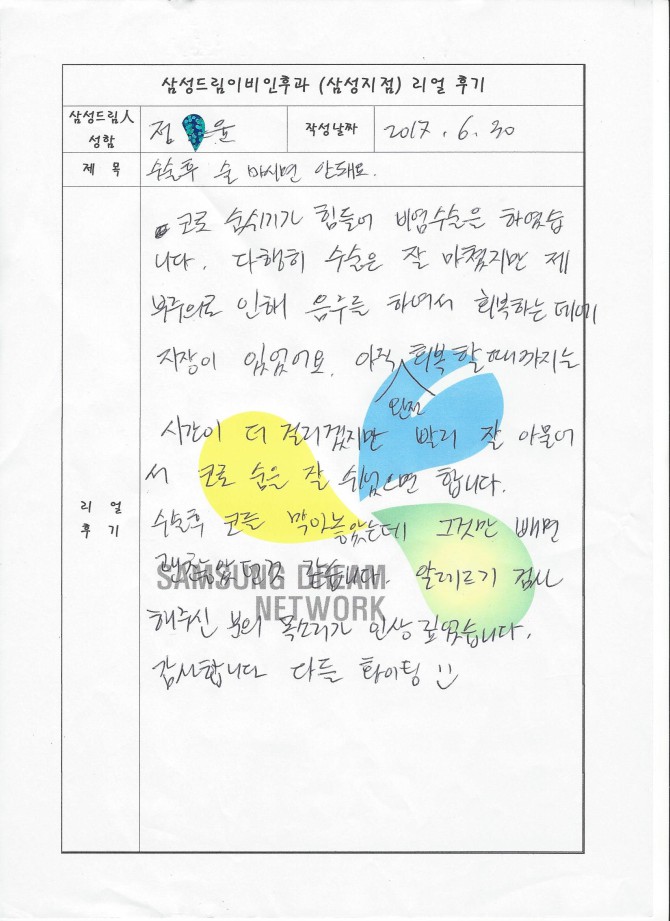 삼성드림이비인후과 (삼성지점) 리얼 후기
삼성드림人 성함
정 윤
작성날짜
2017. 6. 30
제 목
수술후 술 마시면 안돼요.
리 얼
후 기
코로 숨쉬기가 힘들어 비염수술은 하였습
니다. 다행히 수술은 잘 마쳤지만 제
부주의로 인해 음주를 하여서 회복하는데에
지장이 있었어요. 아직 완전 회복할때까지는
시간이 더 걸리겠지만 빨리 잘 아물어
서 코로 숨을 잘 쉬었으면 합니다.
수술후 코를 막아놓았는데 그것만 빼면
괜찮았던것 같습니다. 알레르기 검사
해주신 분의 목소리가 인상 깊었습니다.
감사합니다 다들 화이팅 :)
SAMSUNG DREAM
NETWORK